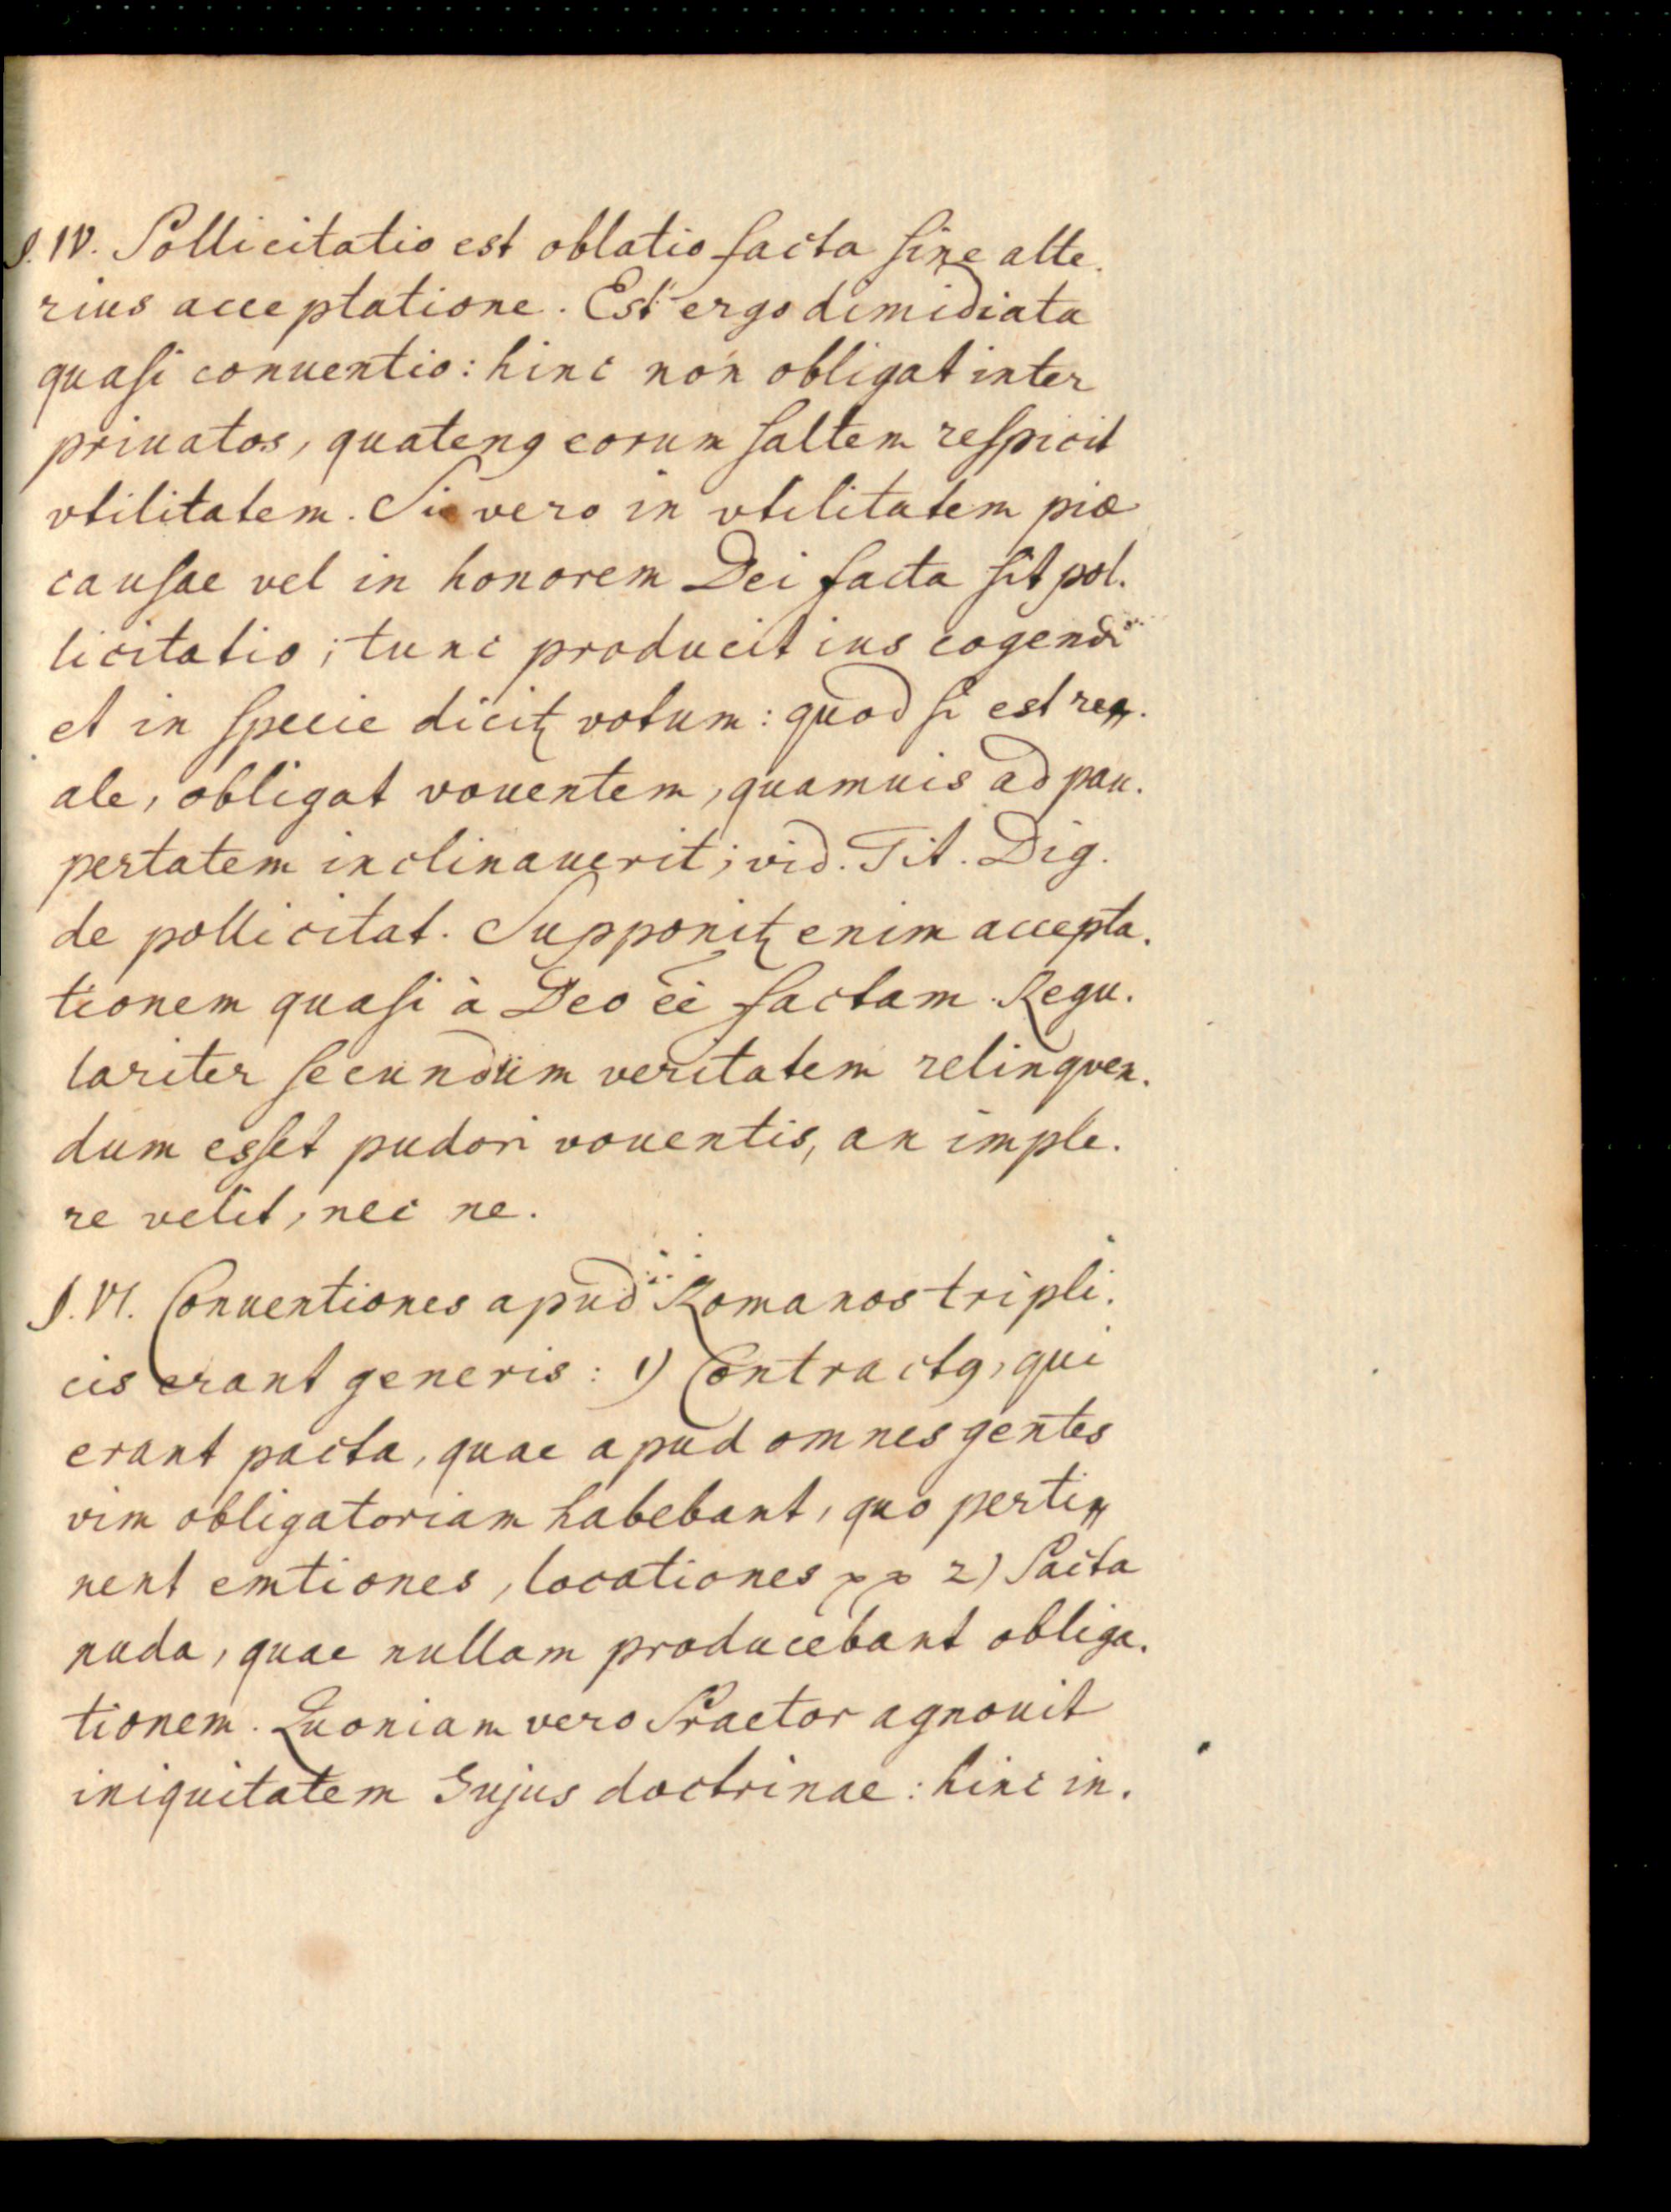 §. IV. Pollicitatio est oblatio facta sine alte.
rius acceptatione. Est ergo dimidiata
quasi conuentio: hinc non obligat inter
priuatos, quatenꝯ eorum saltem respicit
vtilitatem. Si vero in vtilitatem piae
causae vel in honorem Dei facta sit pol.
licitatio; tunc producit ius cogendi
et in specie dicitꝛ votum: quod si est re.
ale, obligat vouentem, quamuis ad pau.
pertatem inclinauerit; vid. Tit. Dig.
de pollicitat. Supponitꝛ enim accepta.
tionem quasi à Deo eē factam. Regu.
lariter secundum veritatem relinquen.
dum esset pudori vouentis, an imple.
re velit, nec ne.
§. VI. Conuentiones apud Romanos tripli.
cis erant generis: 1) Contractꝯ, qui
erant pacta, quae apud omnes gentes
vim obligatoriam habebant, quo perti
nent emtiones, locationes 2) Pacta
nuda, quae nullam producebant obliga.
tionem. Quoniam vero Praetor agnouit
iniquitatem hujus doctrinae: hinc in.